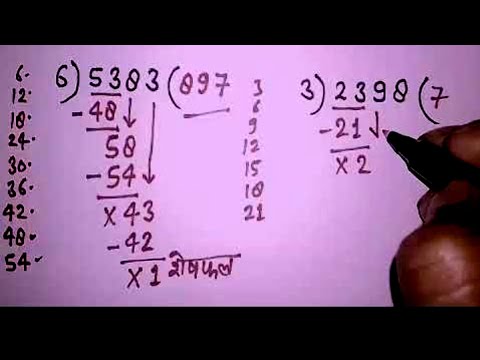 6.
12.
18.
24.
30.
36.
42.
48.
54.
6) 5383 (897
-48
58
-54
x 43
-42
x 1 शेषफल
3
6
9
12
15
18
21
3) 2398 (7
-21
x 2